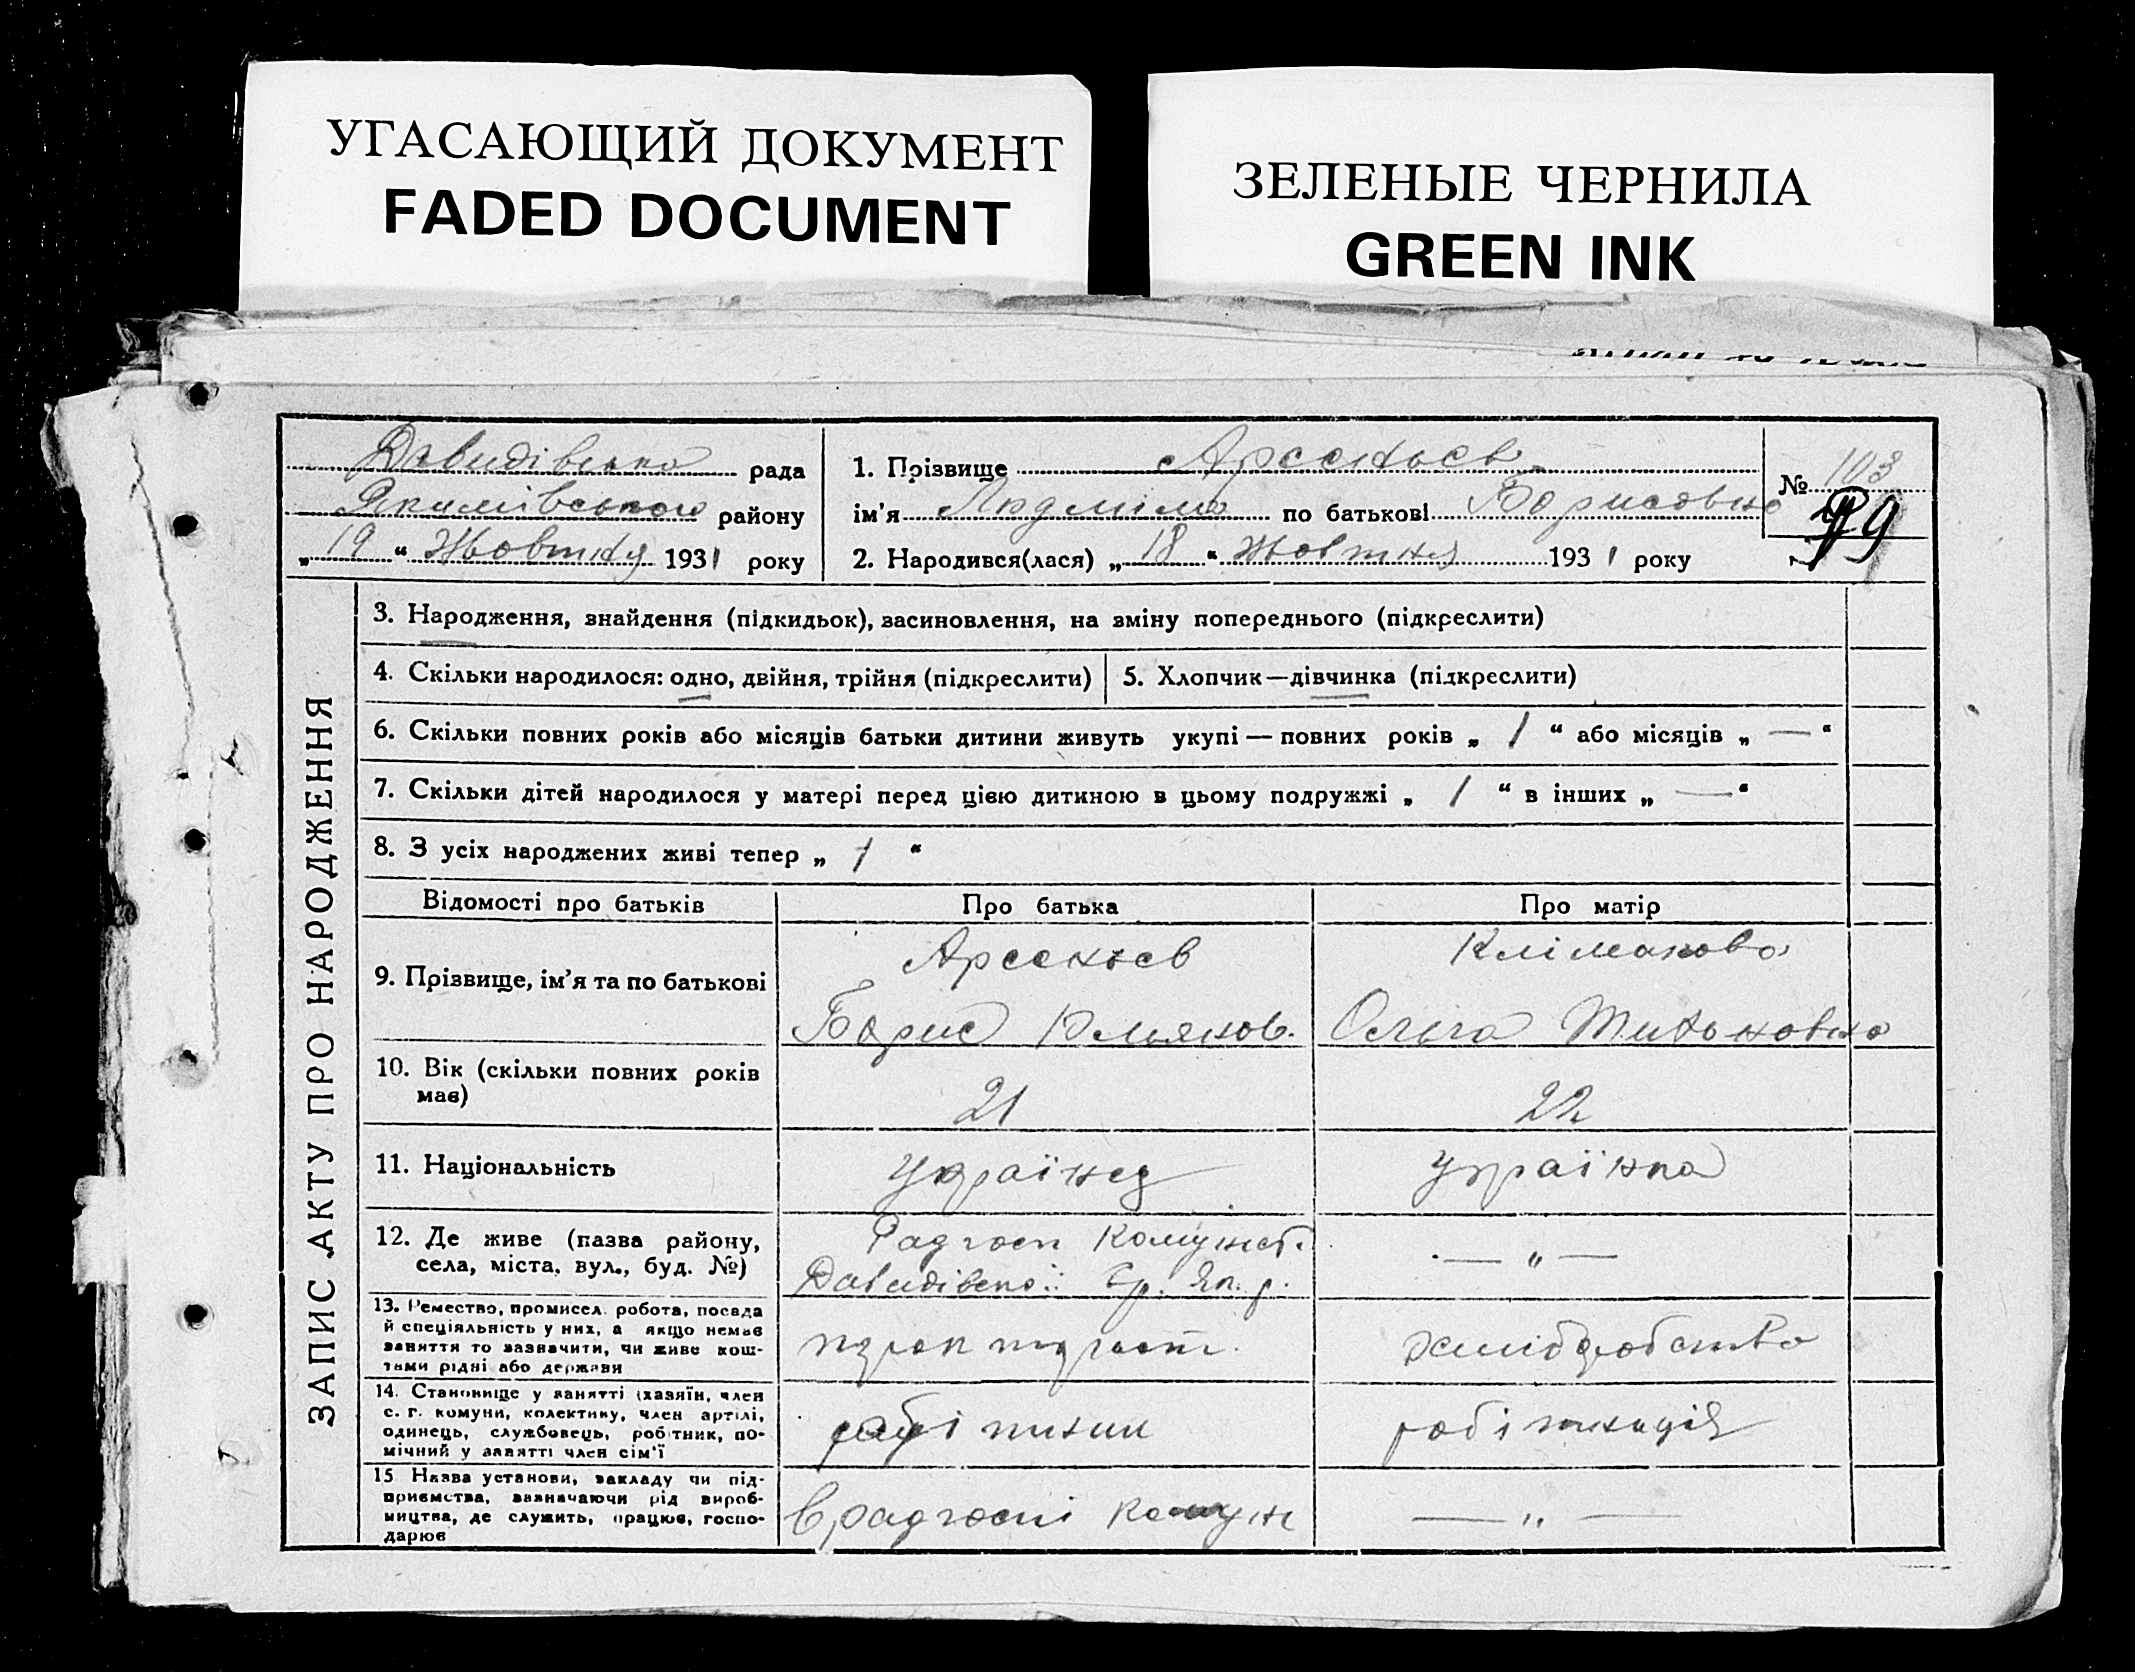 УГАСАЮЩИЙ ДОКУМЕНТ
FADED DOCUMENT
ЗЕЛЕНЫЕ ЧЕРНИЛА
GREEN INK
Давидівська рада
Якимівського району
„ 19 “ Жовтня 1931 року
1. Прізвище Арсеньєв
ім'я Людміла по батькові Борисовна
2. Народився(лася) „ 18 “ жовтня 1931 року
№ 103
99
ЗАПИС АКТУ ПРО НАРОДЖЕННЯ
3. Народження, знайдення (підкидьок), засиновлення, на зміну попереднього (підкреслити)
4. Скільки народилося: одно, двійня, трійня (підкреслити)
5. Хлопчик—дівчинка (підкреслити)
6. Скільки повних років або місяців батьки дитини живуть укупі — повних років „ 1 “ або місяців „ — “
7. Скільки дітей народилося у матері перед цією дитиною в цьому подружжі „ 1 “ в інших „ — “
8. З усіх народжених живі тепер „ 1 “
Відомості про батьків
Про батька
Про матір
9. Прізвище, ім'я та по батькові
Арсеньєв
Борис
Клімакова
Ольга
10. Вік (скільки повних років має)
21
22
11. Національність
українец
українка
12. Де живе (назва району,
села, міста, вул., буд. №)
Радгосп Комуніст.
Давидівської Ср. Як. р.
— „ —
13. Ремество, промисел, робота, посада
й спеціяльність у них, а якщо немає
заняття то зазначити, чи живе кош-
тами рідні або держави
14. Становище у занятті (хазяїн, член
с. г. комуни, колективу, член артілі,
одинець, службовець, робітник, по-
мічний у занятті член сім'ї
робітник
робітниця
15 Назва установи, закладу чи під-
приємства, зазначаючи рід вироб-
ництва, де служить, працює, госпо-
дарює
в радгоспі Комун
— „ —